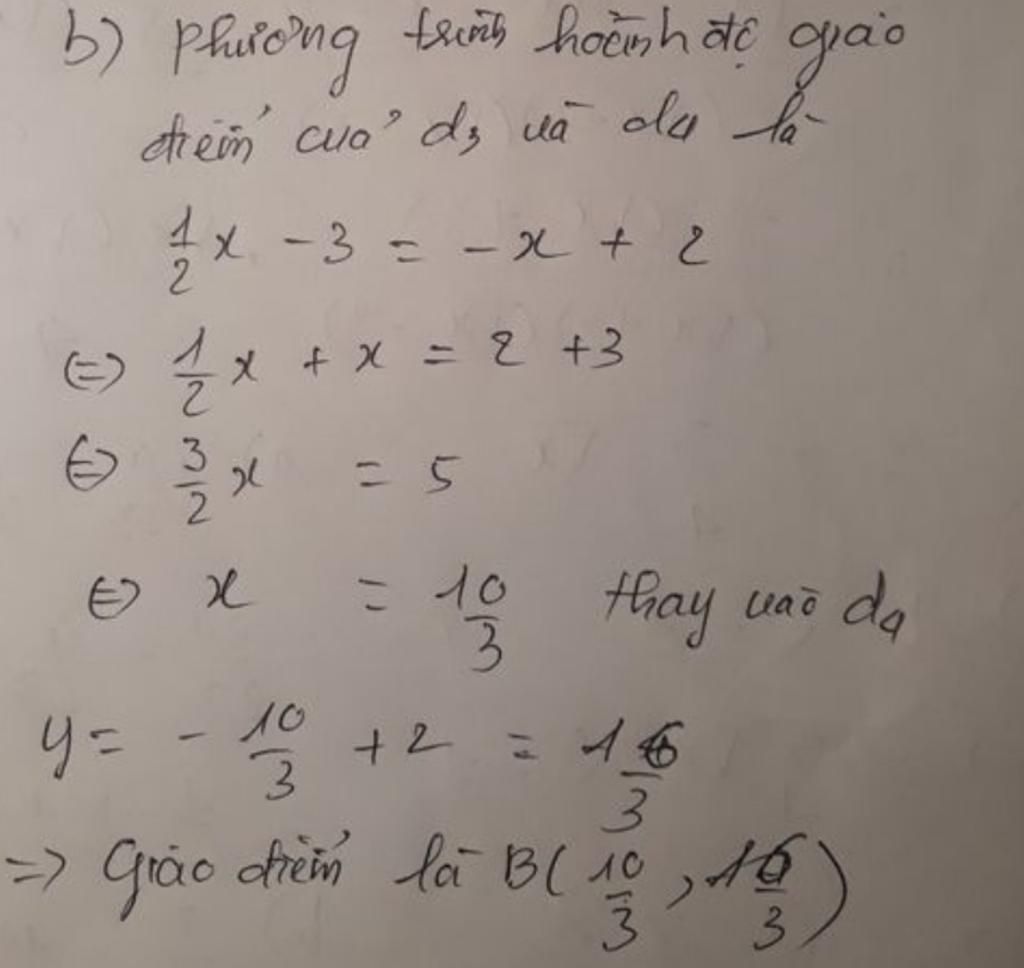 b) Phương trình hoành độ giao
điểm của d₃ và d₄ là
1/2 x - 3 = -x + 2
⇔ 1/2 x + x = 2 + 3
⇔ 3/2 x = 5
⇔ x = 10/3 thay vào d₄
y = - 10/3 + 2 = 16/3
=> Giao điểm là B( 10/3 , 16/3 )